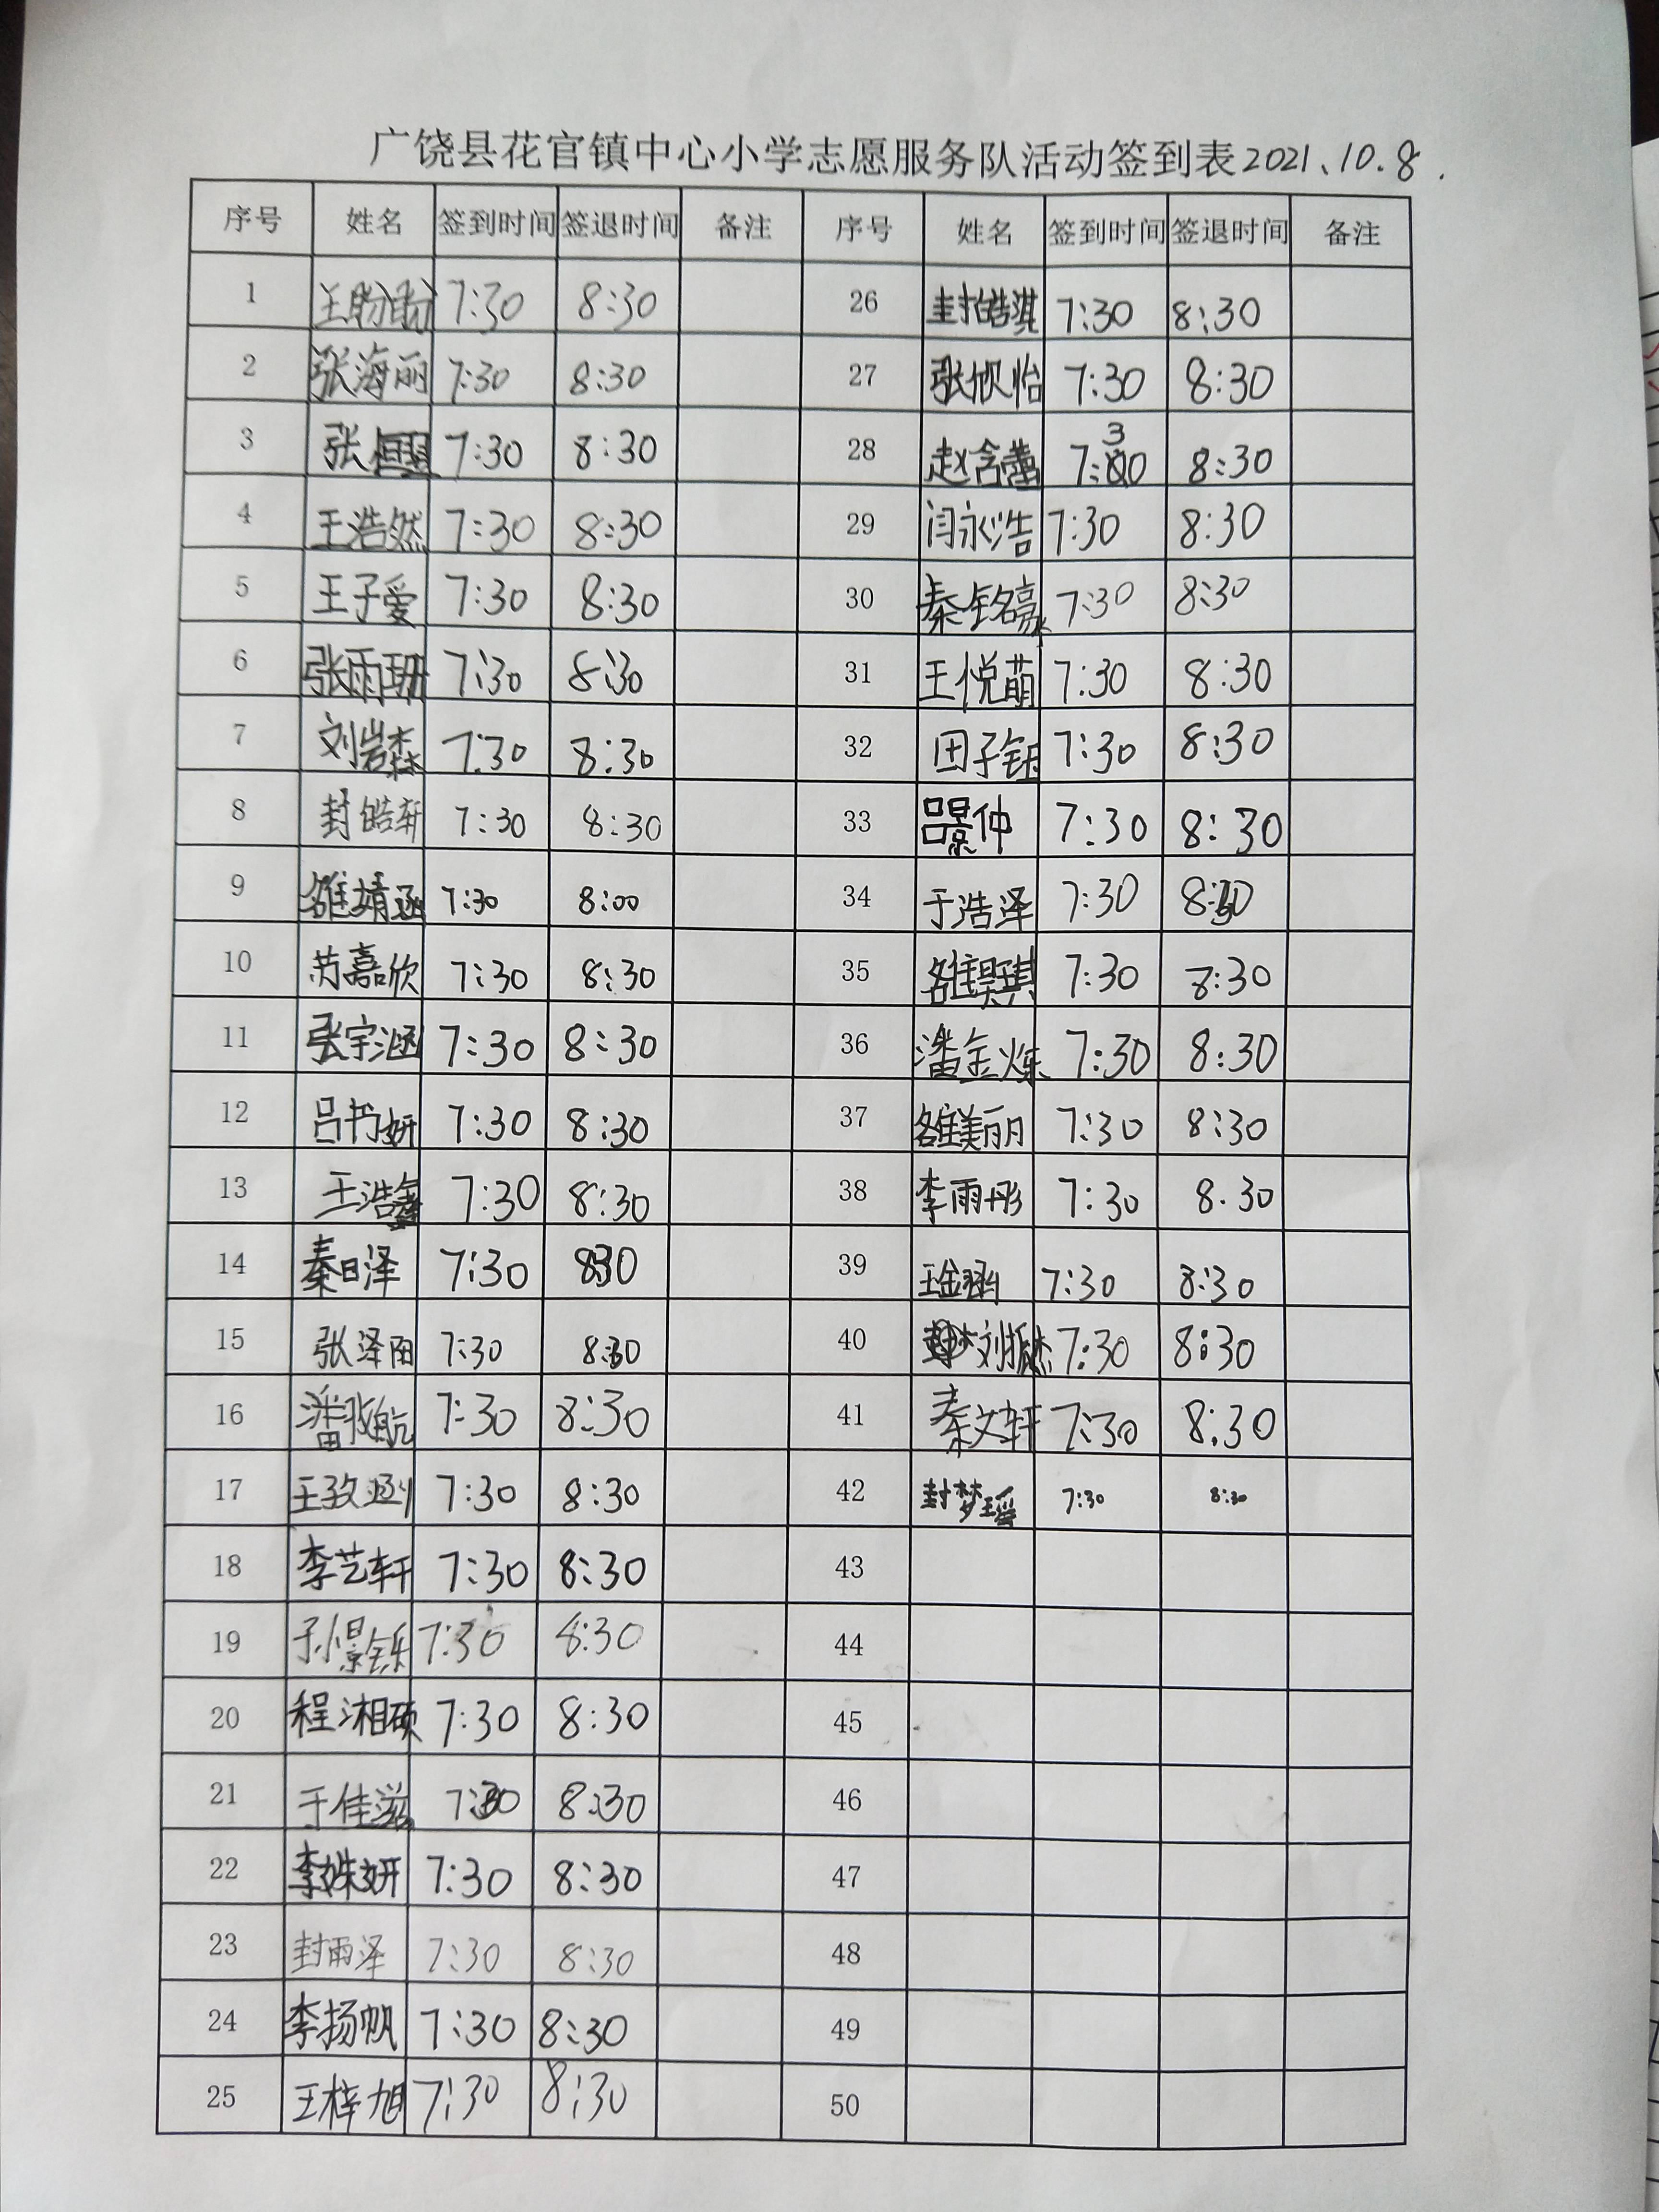 广饶县花官镇中心小学志愿服务队活动签到表2021、10.8.
序号 姓名 签到时间 签退时间 备注 序号 姓名 签到时间 签退时间 备注
1 王盼盼 7:30 8:30 26 封皓淇 7:30 8:30
2 张海丽 7:30 8:30 27 张欣怡 7:30 8:30
3 张 7:30 8:30 28 赵含蕾 7:30 8:30
4 王浩然 7:30 8:30 29 闫永浩 7:30 8:30
5 王子爱 7:30 8:30 30 秦铭 7:30 8:30
6 张雨珊 7:30 8:30 31 王悦萌 7:30 8:30
7 刘岩森 7:30 8:30 32 田子钰 7:30 8:30
8 封皓轩 7:30 8:30 33 吕景仲 7:30 8:30
9 雒婧涵 7:30 8:00 34 于浩泽 7:30 8:30
10 苏嘉欣 7:30 8:30 35 雒昊琪 7:30 8:30
11 张宇涵 7:30 8:30 36 潘金烁 7:30 8:30
12 吕书妍 7:30 8:30 37 雒美丽 7:30 8:30
13 王浩鑫 7:30 8:30 38 李雨彤 7:30 8.30
14 秦日泽 7:30 8:30 39 王金涵 7:30 8:30
15 张泽阳 7:30 8:30 40 刘振杰 7:30 8:30
16 潘航 7:30 8:30 41 秦文轩 7:30 8:30
17 王 7:30 8:30 42 封梦瑶 7:30 8:30
18 李艺轩 7:30 8:30 43
19 孙景铄 7:30 8:30 44
20 程湘硕 7:30 8:30 45
21 于佳滋 7:30 8:30 46
22 李姝妍 7:30 8:30 47
23 封雨泽 7:30 8:30 48
24 李扬帆 7:30 8:30 49
25 王梓旭 7:30 8:30 50